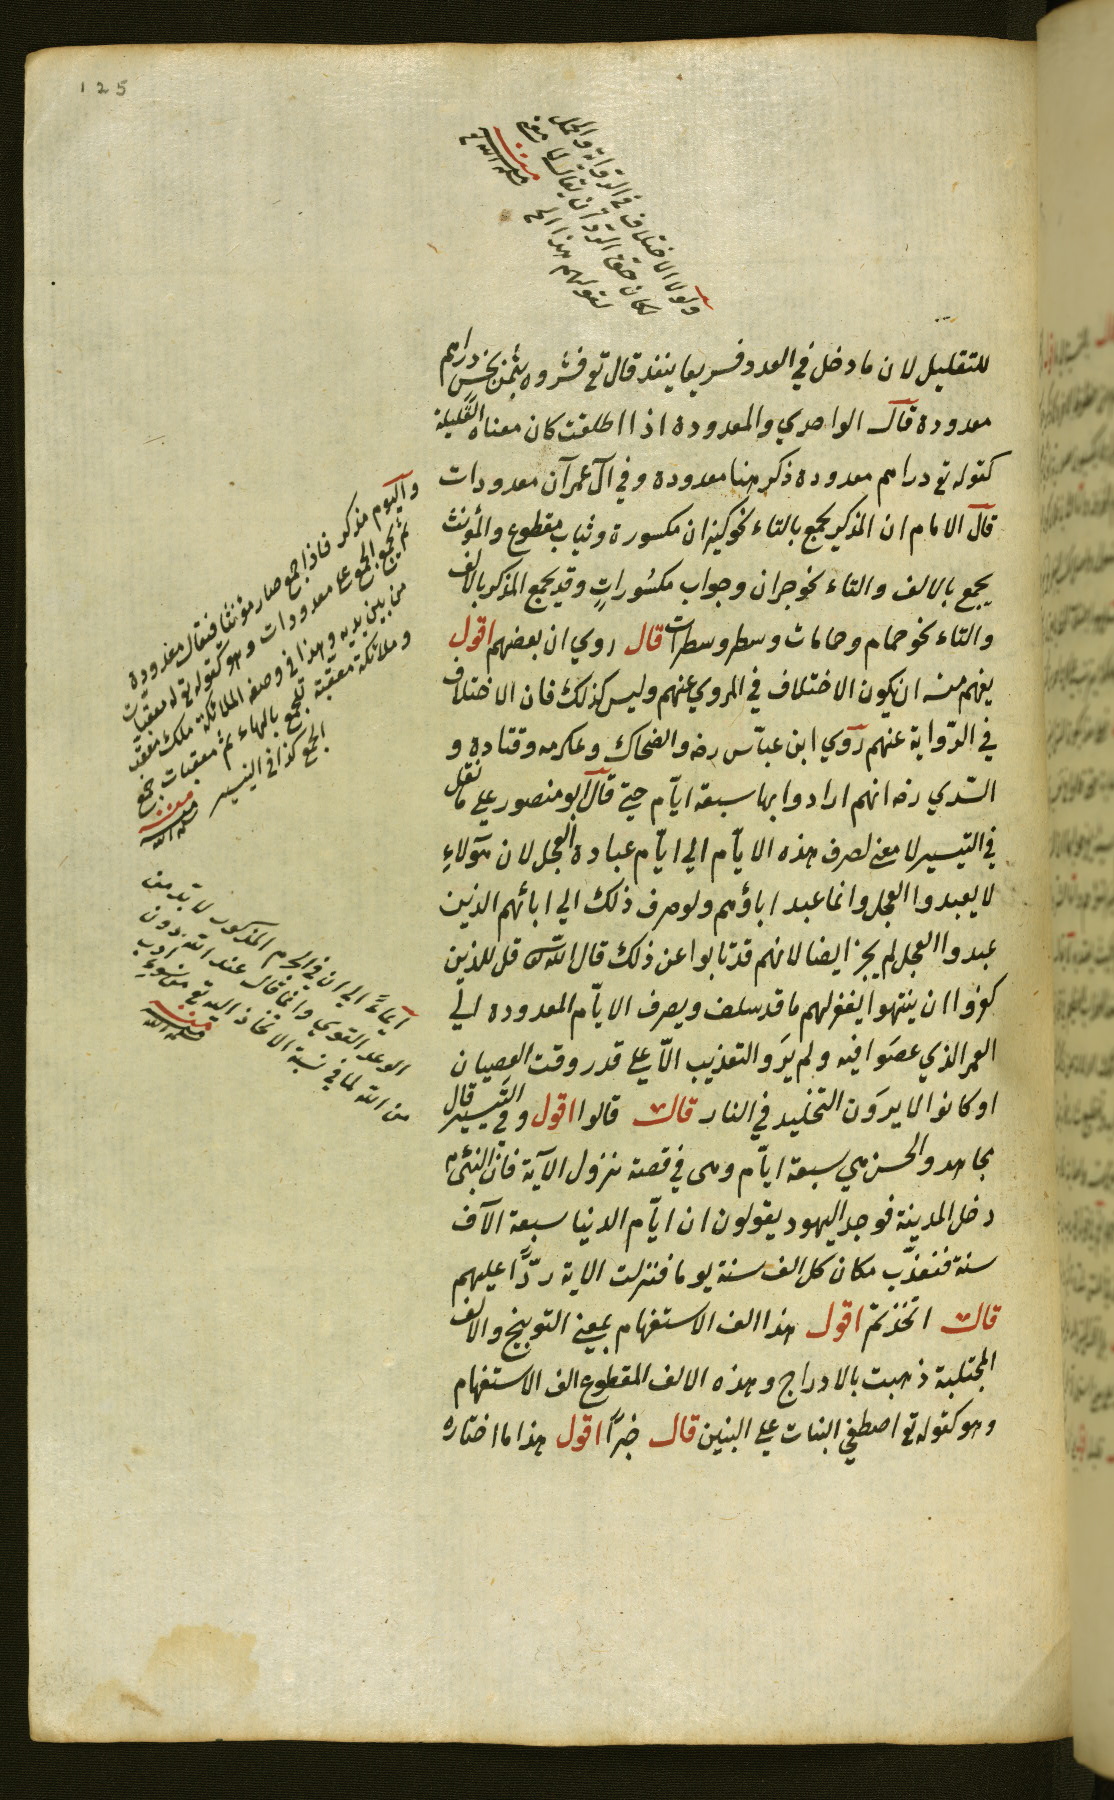 125
ولولا الاختلاف في الرواية والحمل
لكان حق الرد ان يقال لا معنى
لقولهم هذا الخ
منه
سلمه الله تع
للتقليل لان ما دخل في العدد فسريعا ينفد قال تع فشروه بثمن بخس دراهم
معدودة قال الواحدي والمعدودة اذا اطلقت كان معناه القليلة
كقوله تع دراهم معدودة ذكر هنا معدودة وفي آل عمرآن معدودات
قال الامام ان المذكر يجمع بالتاء نحو كيزان مكسورة وثياب مقطوع والمؤنث
يجمع بالالف والتاء نحو جران وجواب مكسورات وقد يجمع المذكر بالالف
والتاء نحو حمام وحمامات وسطر وسطرات قال روي ان بعضهم اقول
يفهم منه ان يكون الاختلاف في المروي عنهم وليس كذلك فان الاختلاف
في الرواية عنهم روي ابن عباس رضه والضحاك وعكرمه وقتاده و
السدي رضه انهم ارادوا بها سبعة ايام حتى قال ابو منصور على ما نقل
في التيسير لا معنى لصرف هذه الايام الي ايام عبادة العجل لان هؤلاء
لا يعبدوا العجل وانما عبد اباؤهم ولو صرف ذلك الي ابائهم الذين
عبدوا العجل لم يجز ايضا لانهم قد تابوا عن ذلك قال الله تع قل للذين
كفروا ان ينتهوا يغفر لهم ما قد سلف ويصرف الايام المعدودة الي
العمر الذي عصوا فيه ولم يرو التعذيب الا على قدر وقت العصيان
او كانوا لا يرون التخليد في النار قال قالوا اقول وفي التيسير قال
مجاهد والحسن هي سبعة ايام وهى في قصة نزول الآية فان النبي م
دخل المدينة فوجد اليهود يقولون ان ايام الدنيا سبعة الآف
سنة فنعذب مكان كل الف سنة يوما فنزلت الاية ردا عليهم
قال اتخذتم اقول هذا الف الاستفهام بمعنى التوبيخ والالف
المجتلبة ذهبت بالادراج وهذه الالف المقطوع الف الاستفهام
وهو كقوله تع اصطفي البنات على البنين قال خبرا اقول هذا ما اختاره
واليوم مذكر فاذا جمع صار مؤنثا فيقال معدودة
ثم يجمع الجمع على معدودات وهو كقوله تع له معقبات
من بين يديه وهذا في وصف الملائكة ملك معقب
وملائكة معقبة تجمع بالهاء ثم معقبات جمع
الجمع كذا في التيسير
منه
سلمه الله
ايماء الي ان في الجرم المذكور لا بد من
الوعد القوي وانما قال عند الله دون
من الله لما في نسبة الاتخاذ اليه تع من سوء ادب
منه
سلمه الله